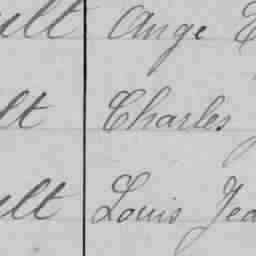 ult Ange
lt Charles
ult Louis Jea